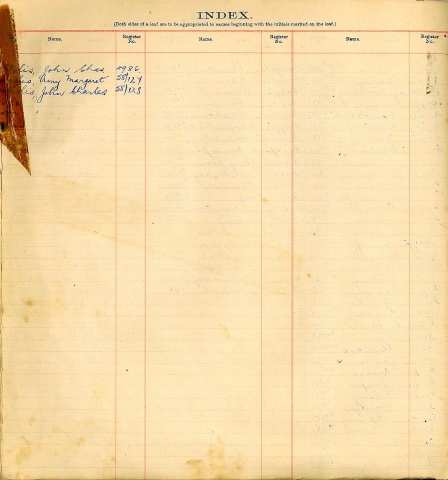 INDEX.
(Both sides of a leaf are to be appropriated to names beginning with the initials marked on the leaf.)
Name. Register No. Name. Register No. Name. Register No.
John Chas
Amy Margaret 58/124
John Charles 58/125